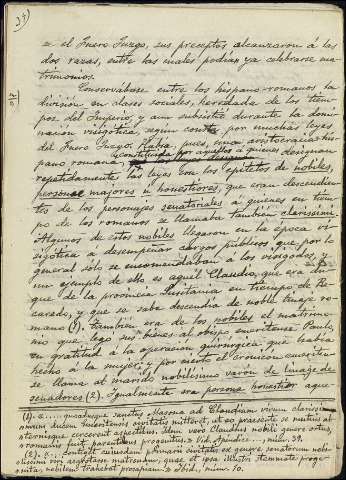 el Fuero Juzgo, sus preceptos alcanzaron á las
dos razas, entre las cuales podían ya celebrarse ma-
trimonios.
Conservábase entre los hispano-romanos la
división en clases sociales, heredada de los tiem-
pos del Imperio, y aun subsistió durante la domi-
nación visigótica, según consta por muchas leyes
del Fuero Juzgo. Había, pues, una aristocracia his-
pano romana, constituida por aquellos á quienes designan
repetidamente las leyes con los epítetos de nobiles,
personae majores ú honestiores, que eran descendien-
tes de los personajes senatoriales á quienes en tiem-
po de los romanos se llamaba también clarissimi.
Algunos de estos nobiles llegaron en la época vi-
sigótica á desempeñar cargos públicos que por lo
general sólo se encomendaban á los visigodos, y
un ejemplo de ello es aquél Claudio, que era du-
que de la provincia Lusitania en tiempo de Re-
caredo, y que se sabe descendía de noble linaje ro-
mano (1). También era de los nobiles el matrimo-
nio que legó sus bienes al obispo emeritense Paulo,
en gratitud á la operación quirúrgica que había
hecho á la mujer, y por cierto el cronicon emeritense
se llama al marido nobilísimo varón de linaje de
senadores (2). Igualmente era persona honestior aque-
(1). quia sanctus Masona ad Claudium virum clarissi-
mum ducem Emeritensis civitatis mitteret, ut eo praesente se
Idem vero Claudius nobili genere ortus,
romanis fuit parentibus progenitus. Vid. Apéndice, núm. 39.
(2). contigit cujusdam primarii civitatis ex genere senatorum nobi-
lissimi viri aegrotasse matronam, quae et ipsa illustri stemmate proge-
nita, nobilem trahebat prosapiam. Ibid., núm. 10.